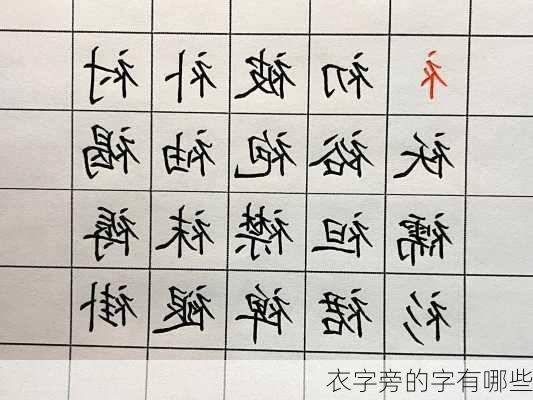 衤初被补衬
袄裕袍袖褐
襦袒襟袜褥
衫裙裨褪褂
衣字旁的字有哪些